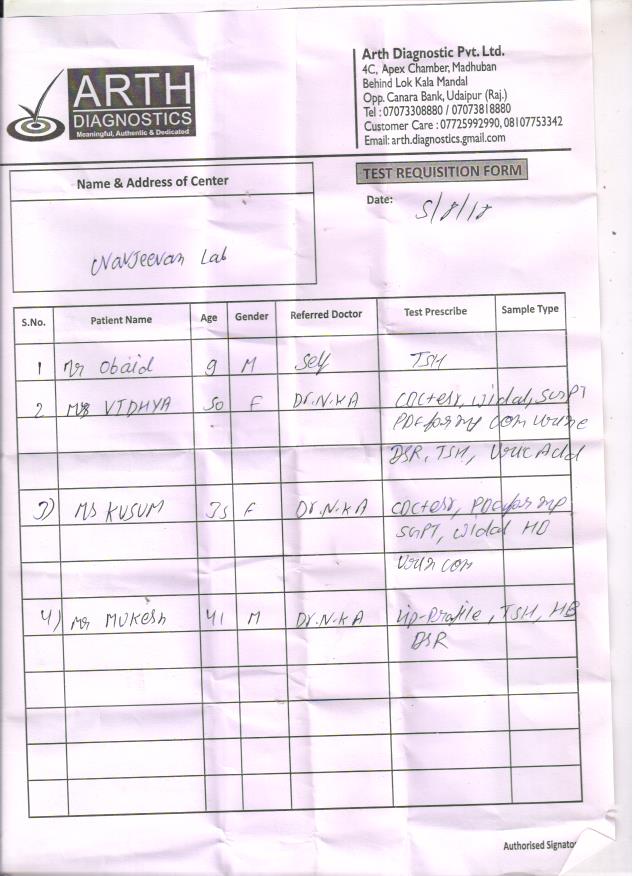 ARTH
DIAGNOSTICS
Meaningful, Authentic & Dedicated
Arth Diagnostic Pvt. Ltd.
4C, Apex Chamber, Madhuban
Behind Lok Kala Mandal
Opp. Canara Bank, Udaipur (Raj.)
Tel : 07073308880 / 07073818880
Customer Care : 07725992990, 08107753342
Email: arth.diagnostics.gmail.com
Name & Address of Center
TEST REQUISITION FORM
Date: 5/8/18
Navjeevan Lab
S.No. Patient Name Age Gender Referred Doctor Test Prescribe Sample Type
1 Mr Obaid 9 M Self TSH
2 VIDHYA 50 F Dr.N.KA widal, SGPT
urine
BSR, TSH, Uric Acid
3) Ms KUSUM 35 F Dr.N.KA
SGPT, widal
com
4) Mr MUKesh 41 M Dr.N.KA Lip-Profile, TSH, HB
BSR
Authorised Signato